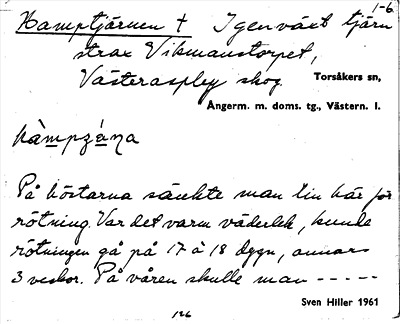 1-6
Hamptjärnen † Igenväxt tjärn
strax Vikmanstorpet,
Västeraspby skog. Torsåkers sn,
Ångerm. m. doms. tg., Västern. l.
På höstarna sänkte man lin här för
rötning. Var det varm väderlek, kunde
rötningen gå på 17 à 18 dygn, annars
3 veckor. På våren skulle man -----
Sven Hiller 1961
126